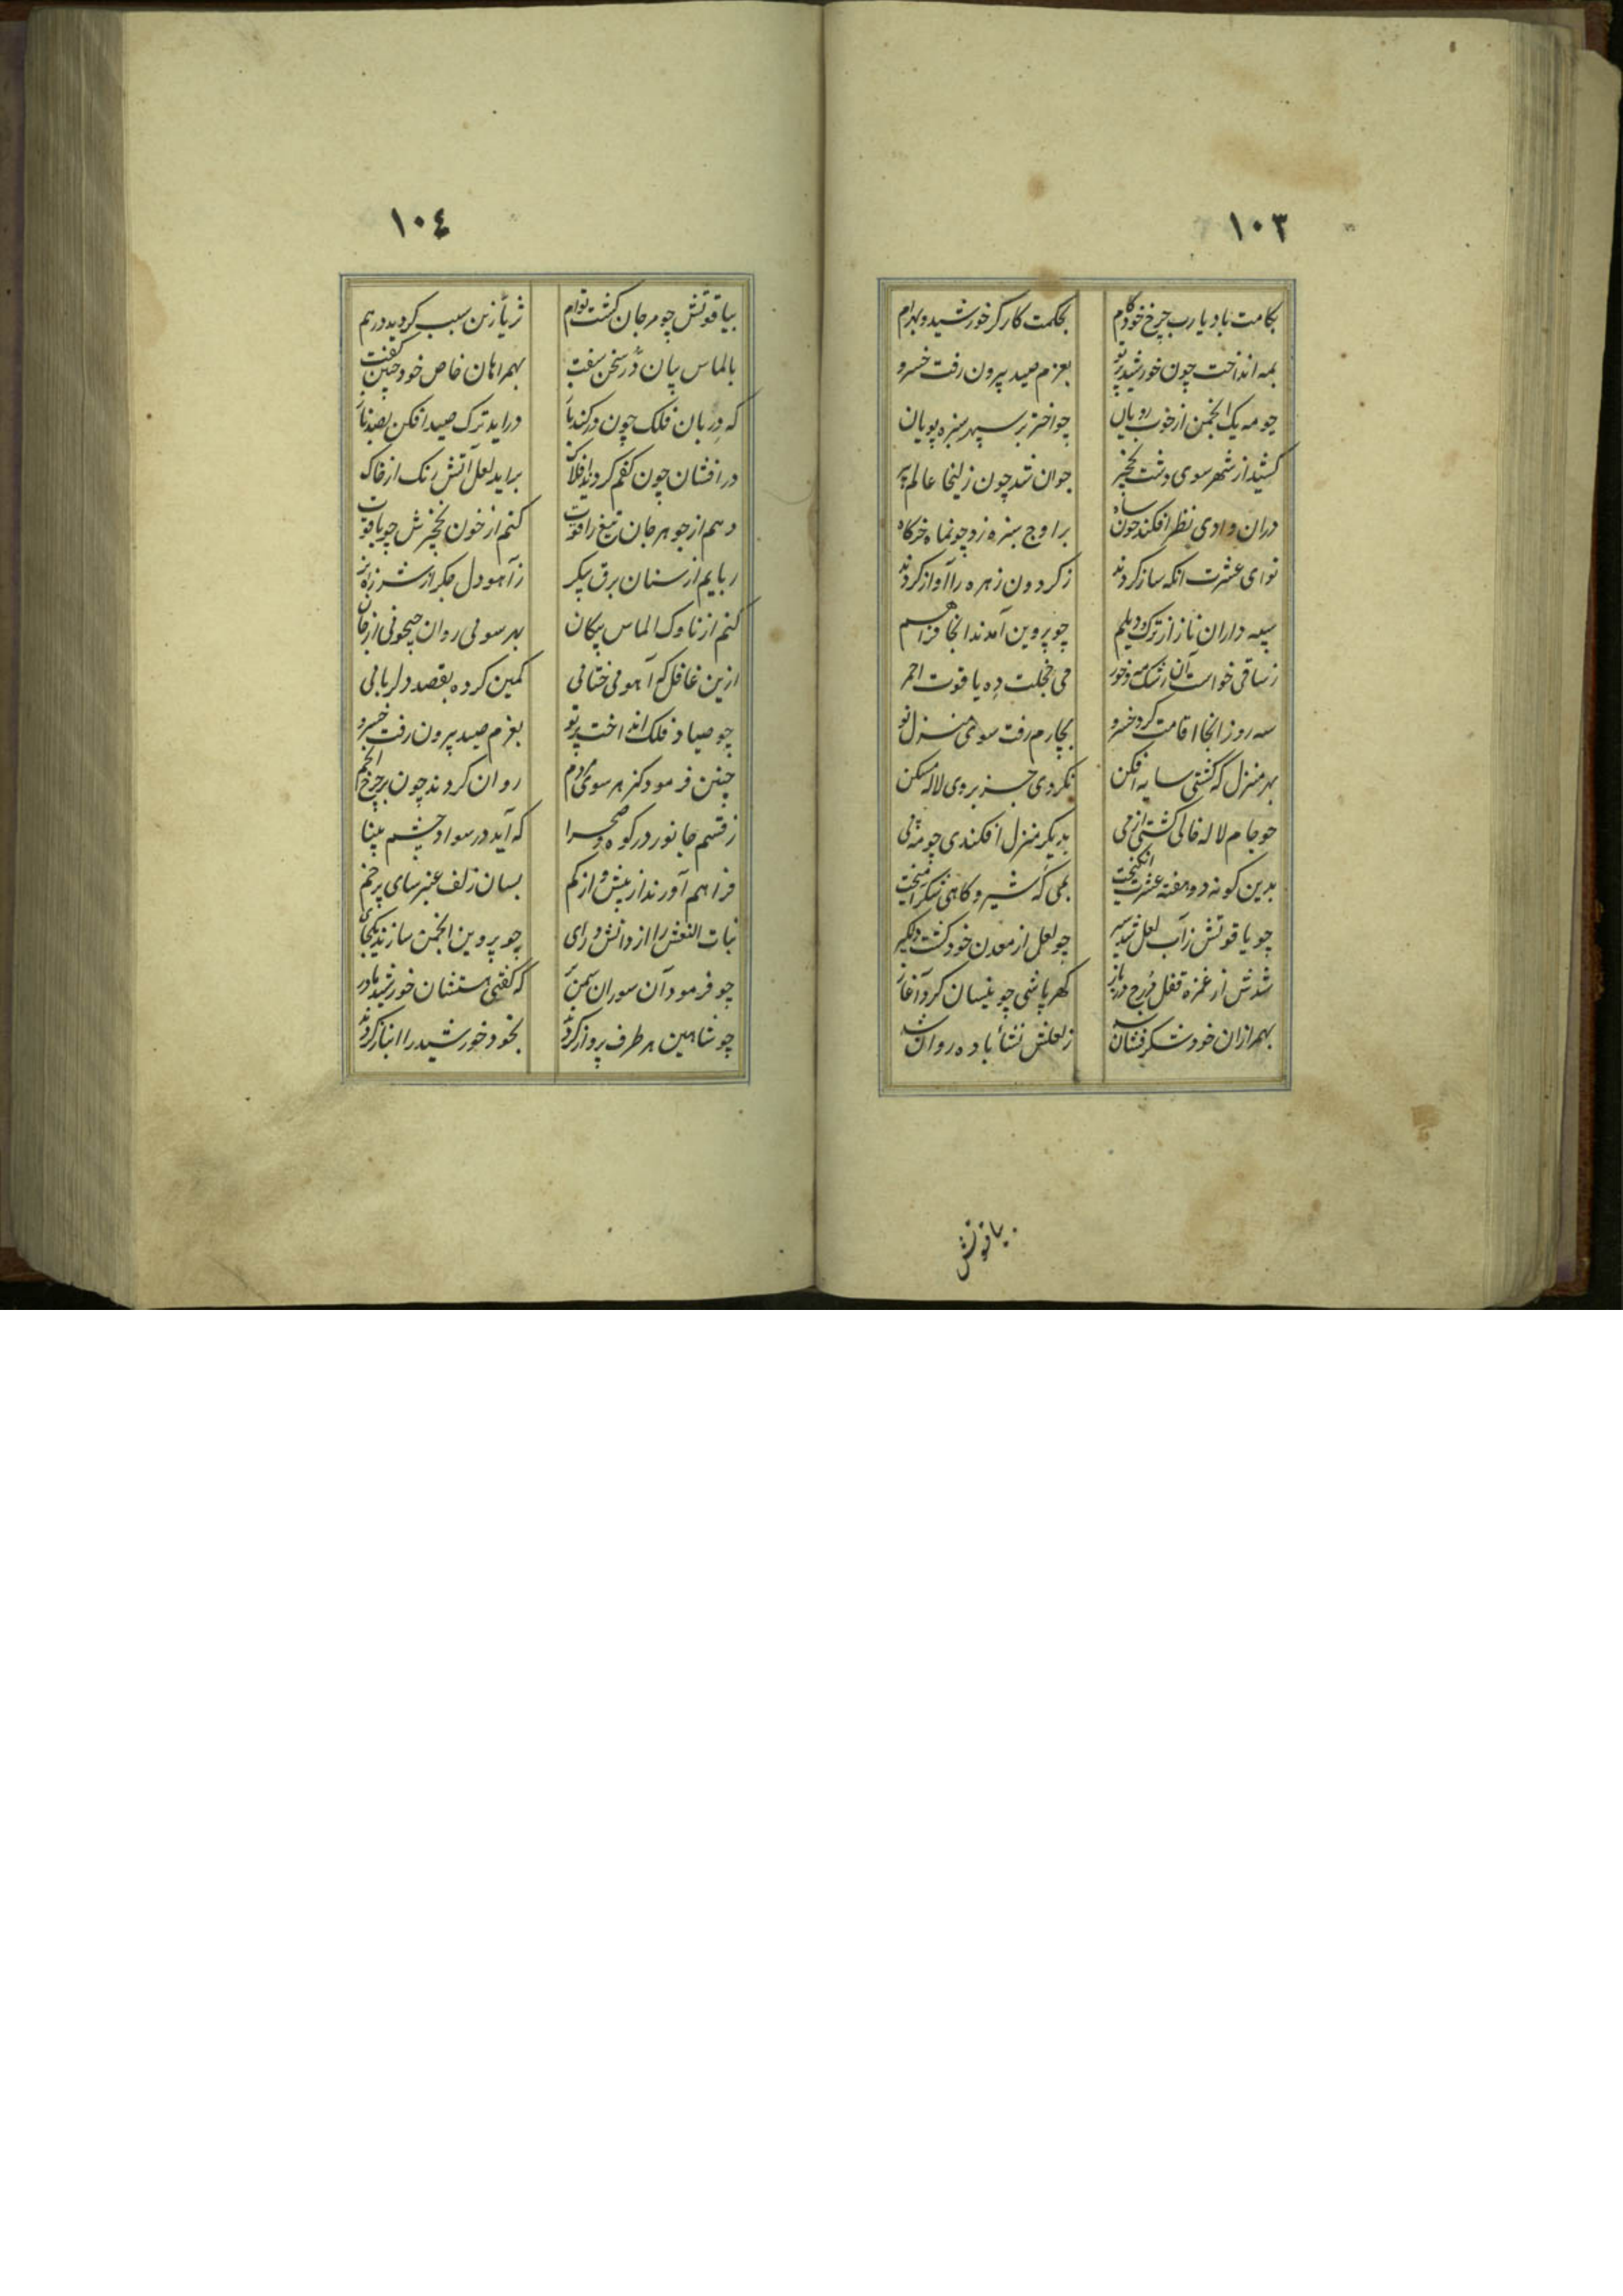 ١٠٣
بکامت باد یا رب چرخ خودکام بحکمت کارکر خورشید و بهرام
بمه انداخت چون خورشید پرتو بعزم صید بیرون رفت خسرو
چو مه یک انجمن از خوب رویان چو اختر بر سپهر سبزه پویان
کشید از شهر سوی دشت نخچیر جوان شد چون زلیخا عالم پیر
دران وادی نظر افکند چون شاه بر اوج سبزه زد چون ماه خرکاه
نوای عشرت انکه ساز کردند ز کردون زهره را آواز کردند
سپه داران ناز از ترک و دیلم چو پروین آمدند انجا فراهم
ز ساقی خواست آن رشک مه و خور می خجلت ده یاقوت احمر
سه روز انجا اقامت کرد خسرو بچارم رفت سوی منزل نو
بهر منزل که کشتی سایه افکن نکردی جز بروی لاله مسکن
چو جام لاله خالی کشتی از می بدیکر منزل افکندی چو مه پی
بدین کونه دو هفته عشرت انکیخت بمی که شیر و کاهی شکر امیخت
چو یاقوتش ز آب لعل شد سیر چو لعل از معدن خود کشت دلکیر
شدش از غمزه قفل درج در باز کهر پاشی چو نیسان کرد آغاز
بهمرازان خود شکرفشان شد ز لعلش نشأ باده روان شد
بیاقوتش
١٠٤
بیاقوتش چو مرجان کشت توام ثریا زین سبب کردید درهم
بالماس بیان در سخن سفت بهمراهان خاص خود چنین کفت
که دربان فلک چون در کند باز دراید ترک صید افکن بصد ناز
درافشان چون کفم کردید افلاک براید لعل آتش رنک از خاک
دهم از جوهر جان تیغ را قوت کنم از خون نخچیرش چو یاقوت
ربایم از سنان برق پیکر ز آهو دل جکر از شرزه نر
کنم از ناوک الماس پیکان بهر سوئی روان جیحونی از جان
ازین غافل که آهوی ختائی کمین کرده بقصد دلربائی
چو صیاد فلک انداخت پرتو بعزم صید بیرون رفت خسرو
چنین فرمود کز هر سوی مردم روان کردند چون بر چرخ انجم
ز قسم جانور در کوه و صحرا که آید در سواد چشم بینا
فراهم آورند از بیش و از کم بسان زلف عنبرسای پر خم
بنات النعش را از دانش و رای چو پروین انجمن سازند یکجای
چو فرمود آن سوران سمن بر که کفتی هستشان خورشید مادر
چو شاهین هر طرف پرواز کردند بخود خورشید را انباز کردند